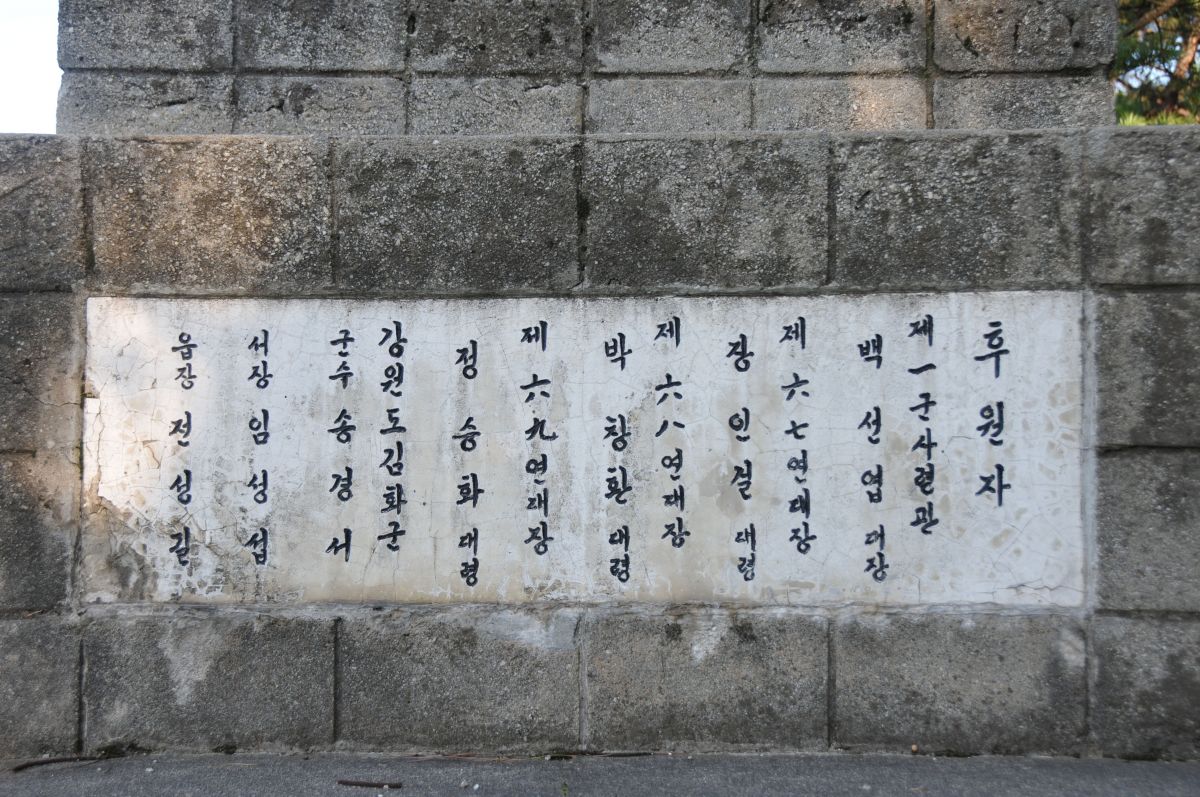 후원자
제一군사령관
백선엽 대장
제六七연대장
장인걸 대령
제六八연대장
박창환 대령
제六九연대장
정승화 대령
강원도김화군
군수 송경서
서장 임성섭
읍장 전성길